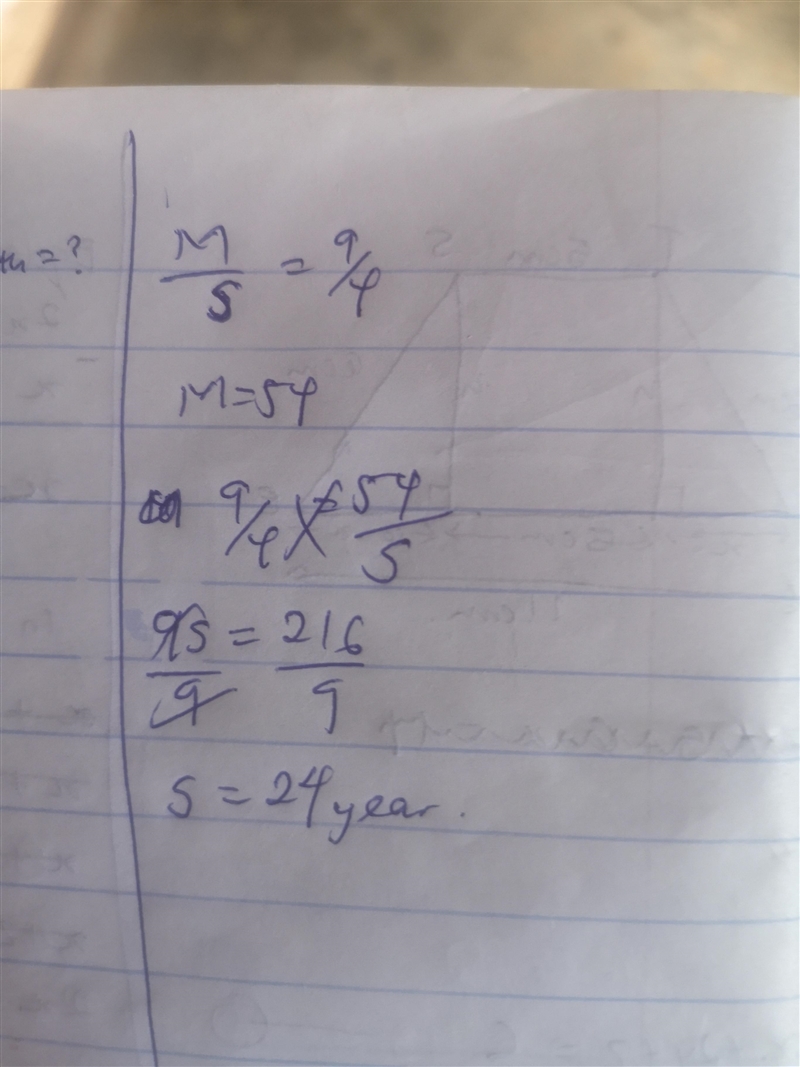 = ?
M/S = 9/4
M=54
9/4 = 54/S
9S/9 = 216/9
S = 24 year.